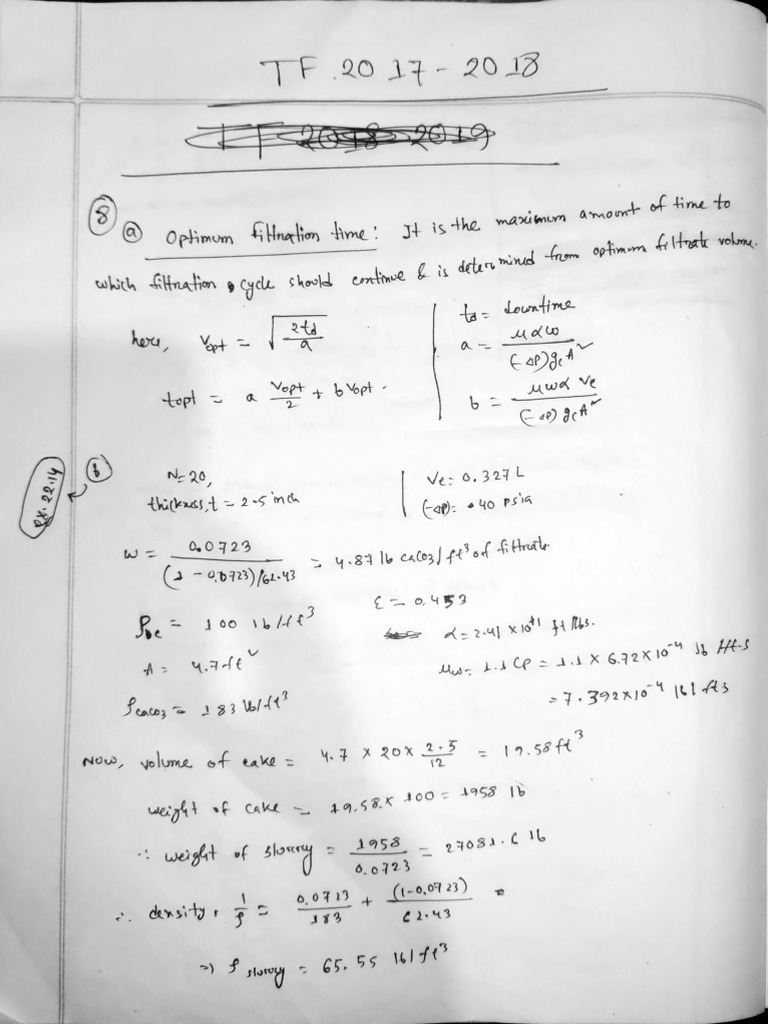 TF 2017-2018
TF 2018-2019
⑧ ⓐ Optimum filtration time: It is the maximum amount of time to
which filtration cycle should continue & is determined from optimum filtrate volume.
here, Vopt = √(2td/a)
td = downtime
a = μαω/(-ΔP)gcA²
topt = a Vopt/2 + b Vopt.
b = μωα Ve/(-ΔP)gcA²
ex. 22.14
ⓑ N=20,
thickness, t = 2.5 inch
Ve = 0.327 L
(-ΔP) = 40 psia
w = 0.0723/(1-0.0723)/62.43 = 4.87 lb CaCO3/ft³ of filtrate
ε = 0.453
= 100 lb/ft³
α = 2.41 × 10^11 ft/lbs.
A = 4.7 ft²
μw = 1.1 CP = 1.1 × 6.72×10⁻⁴ lb/ft.s
= 7.392×10⁻⁴ lb/fts
ρcaco3 = 183 lb/ft³
Now, volume of cake = 4.7 × 20 × 2.5/12 = 19.58 ft³
weight of cake = 19.58 × 100 = 1958 lb
∴ weight of slurry = 1958/0.0723 = 27081.6 lb
∴ density, 1/ρ = 0.0723/183 + (1-0.0723)/62.43
⇒ ρ slurry = 65.55 lb/ft³